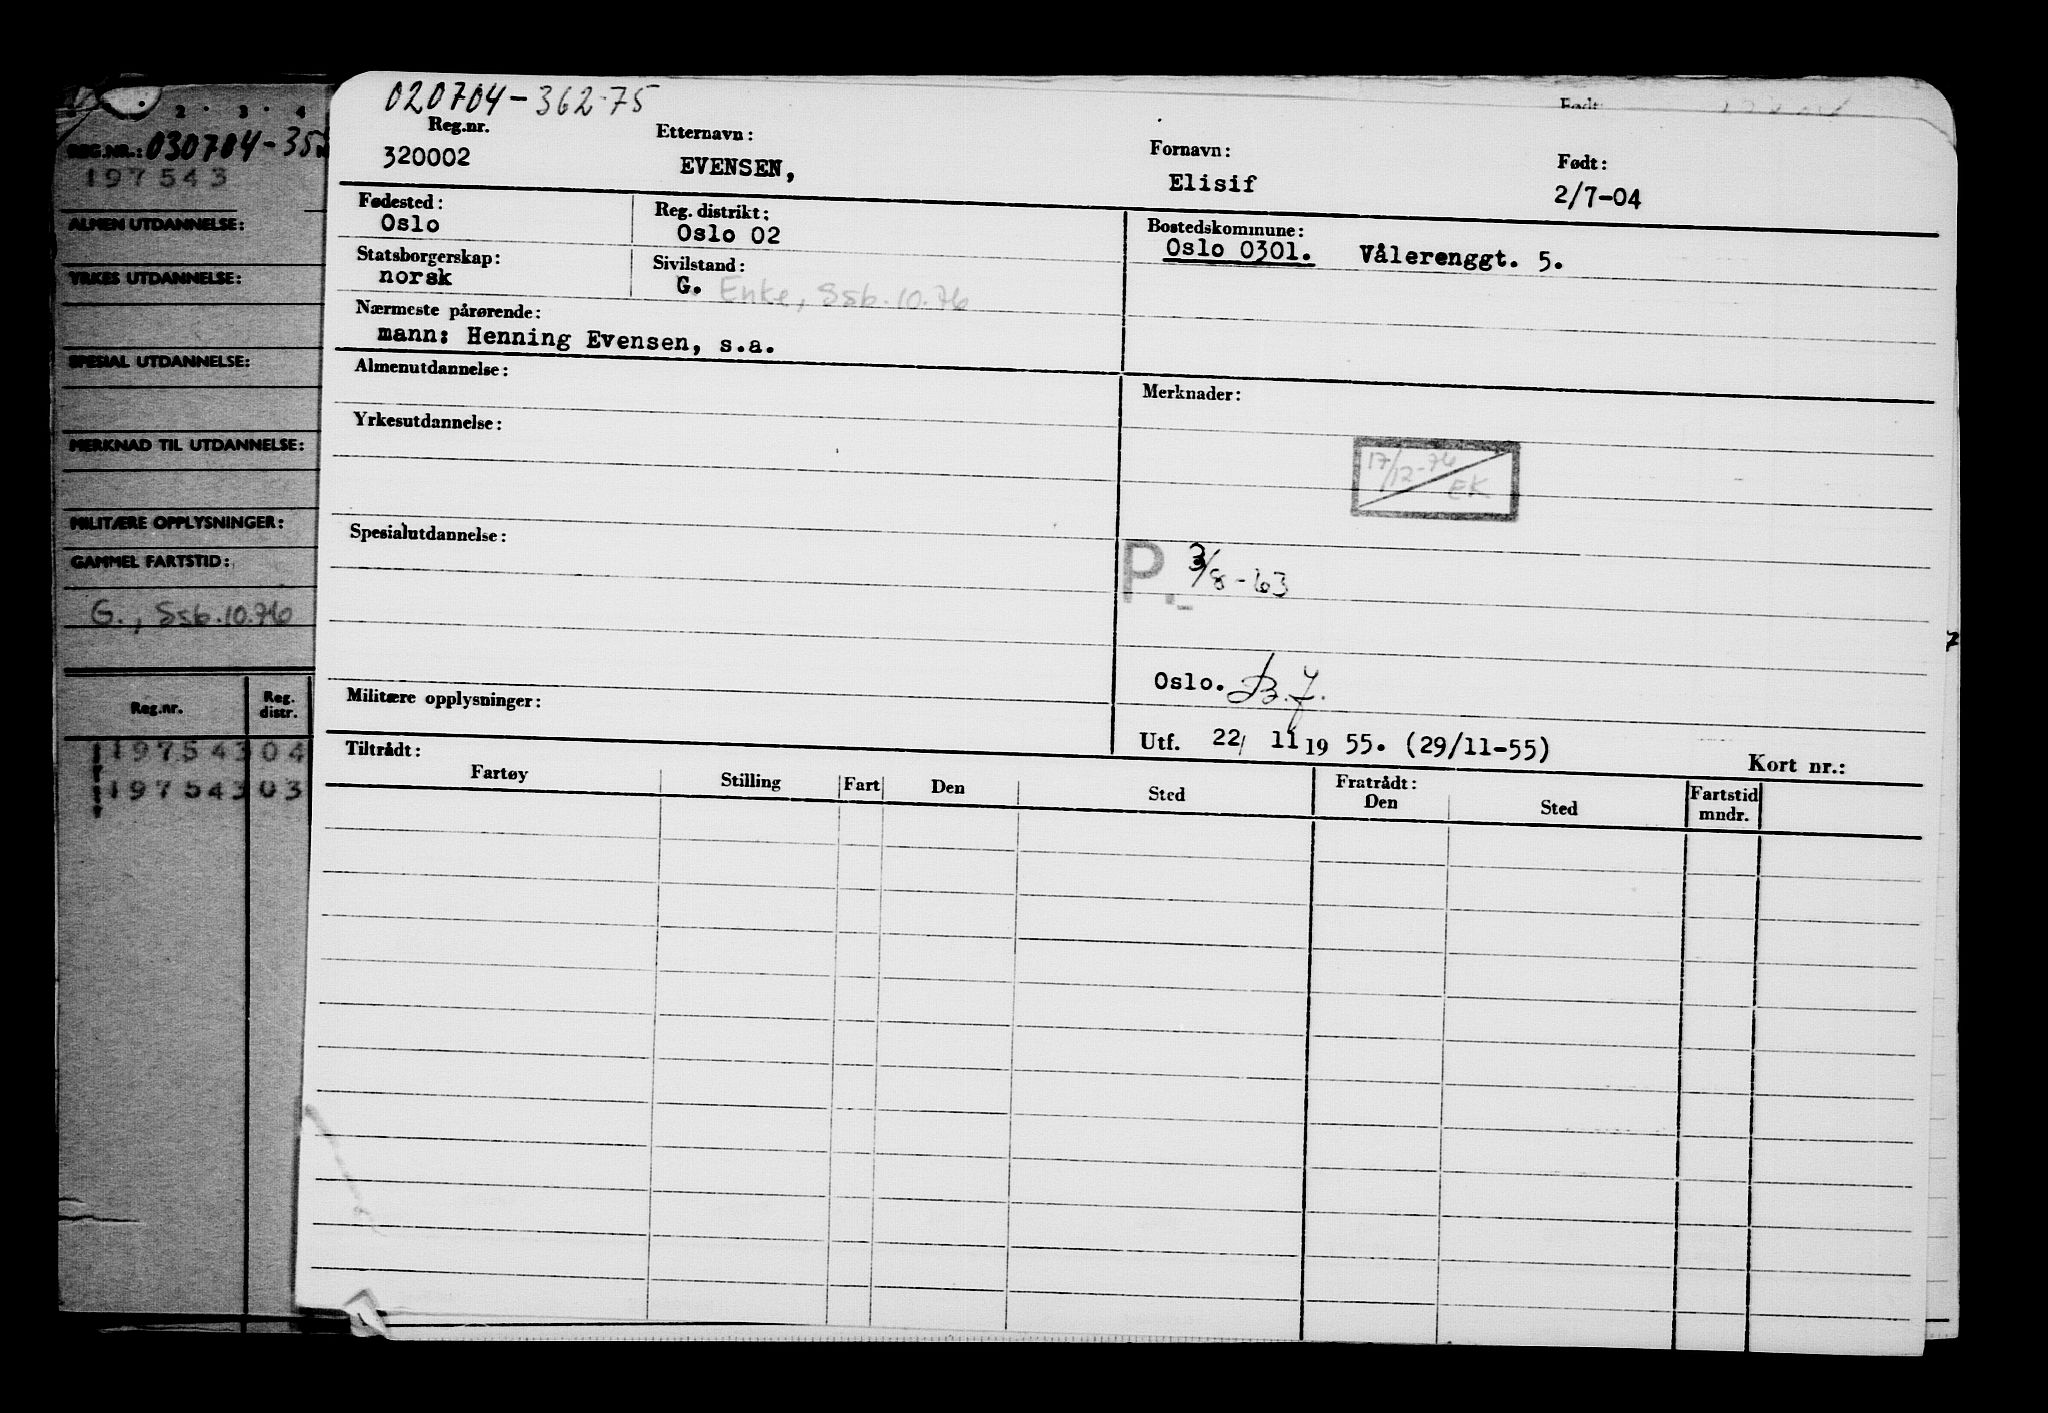 2 · 3 · 4
REG.NR.: 030704-35
197543
ALMEN UTDANNELSE:
YRKES UTDANNELSE:
SPESIAL UTDANNELSE:
MERKNAD TIL UTDANNELSE:
MILITÆRE OPPLYSNINGER:
GAMMEL FARTSTID:
G., Ssb. 10.76
Reg.nr. Reg. distr.
197543 04
197543 03
020704-362 75
Født:
Reg.nr. Etternavn: Fornavn: Født:
320002 EVENSEN, Elisif 2/7-04
Fødested: Reg. distrikt: Bostedskommune:
Oslo Oslo 02 Oslo 0301. Vålerenggt. 5.
Statsborgerskap: Sivilstand:
norsk G. Enke, Ssb. 10.76
Nærmeste pårørende:
mann: Henning Evensen, s.a.
Almenutdannelse: Merknader:
Yrkesutdannelse:
17/12-76 EK
Spesialutdannelse:
P. 3/8-63
Oslo. B.J.
Militære opplysninger:
Utf. 22/ 11 19 55. (29/11-55) Kort nr.:
Tiltrådt: Fratrådt:
Fartøy Stilling Fart Den Sted Den Sted Fartstid mndr.